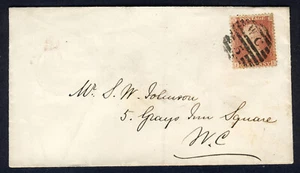 Mr. S. W. Johnson
5. Grays Inn Square
W.C